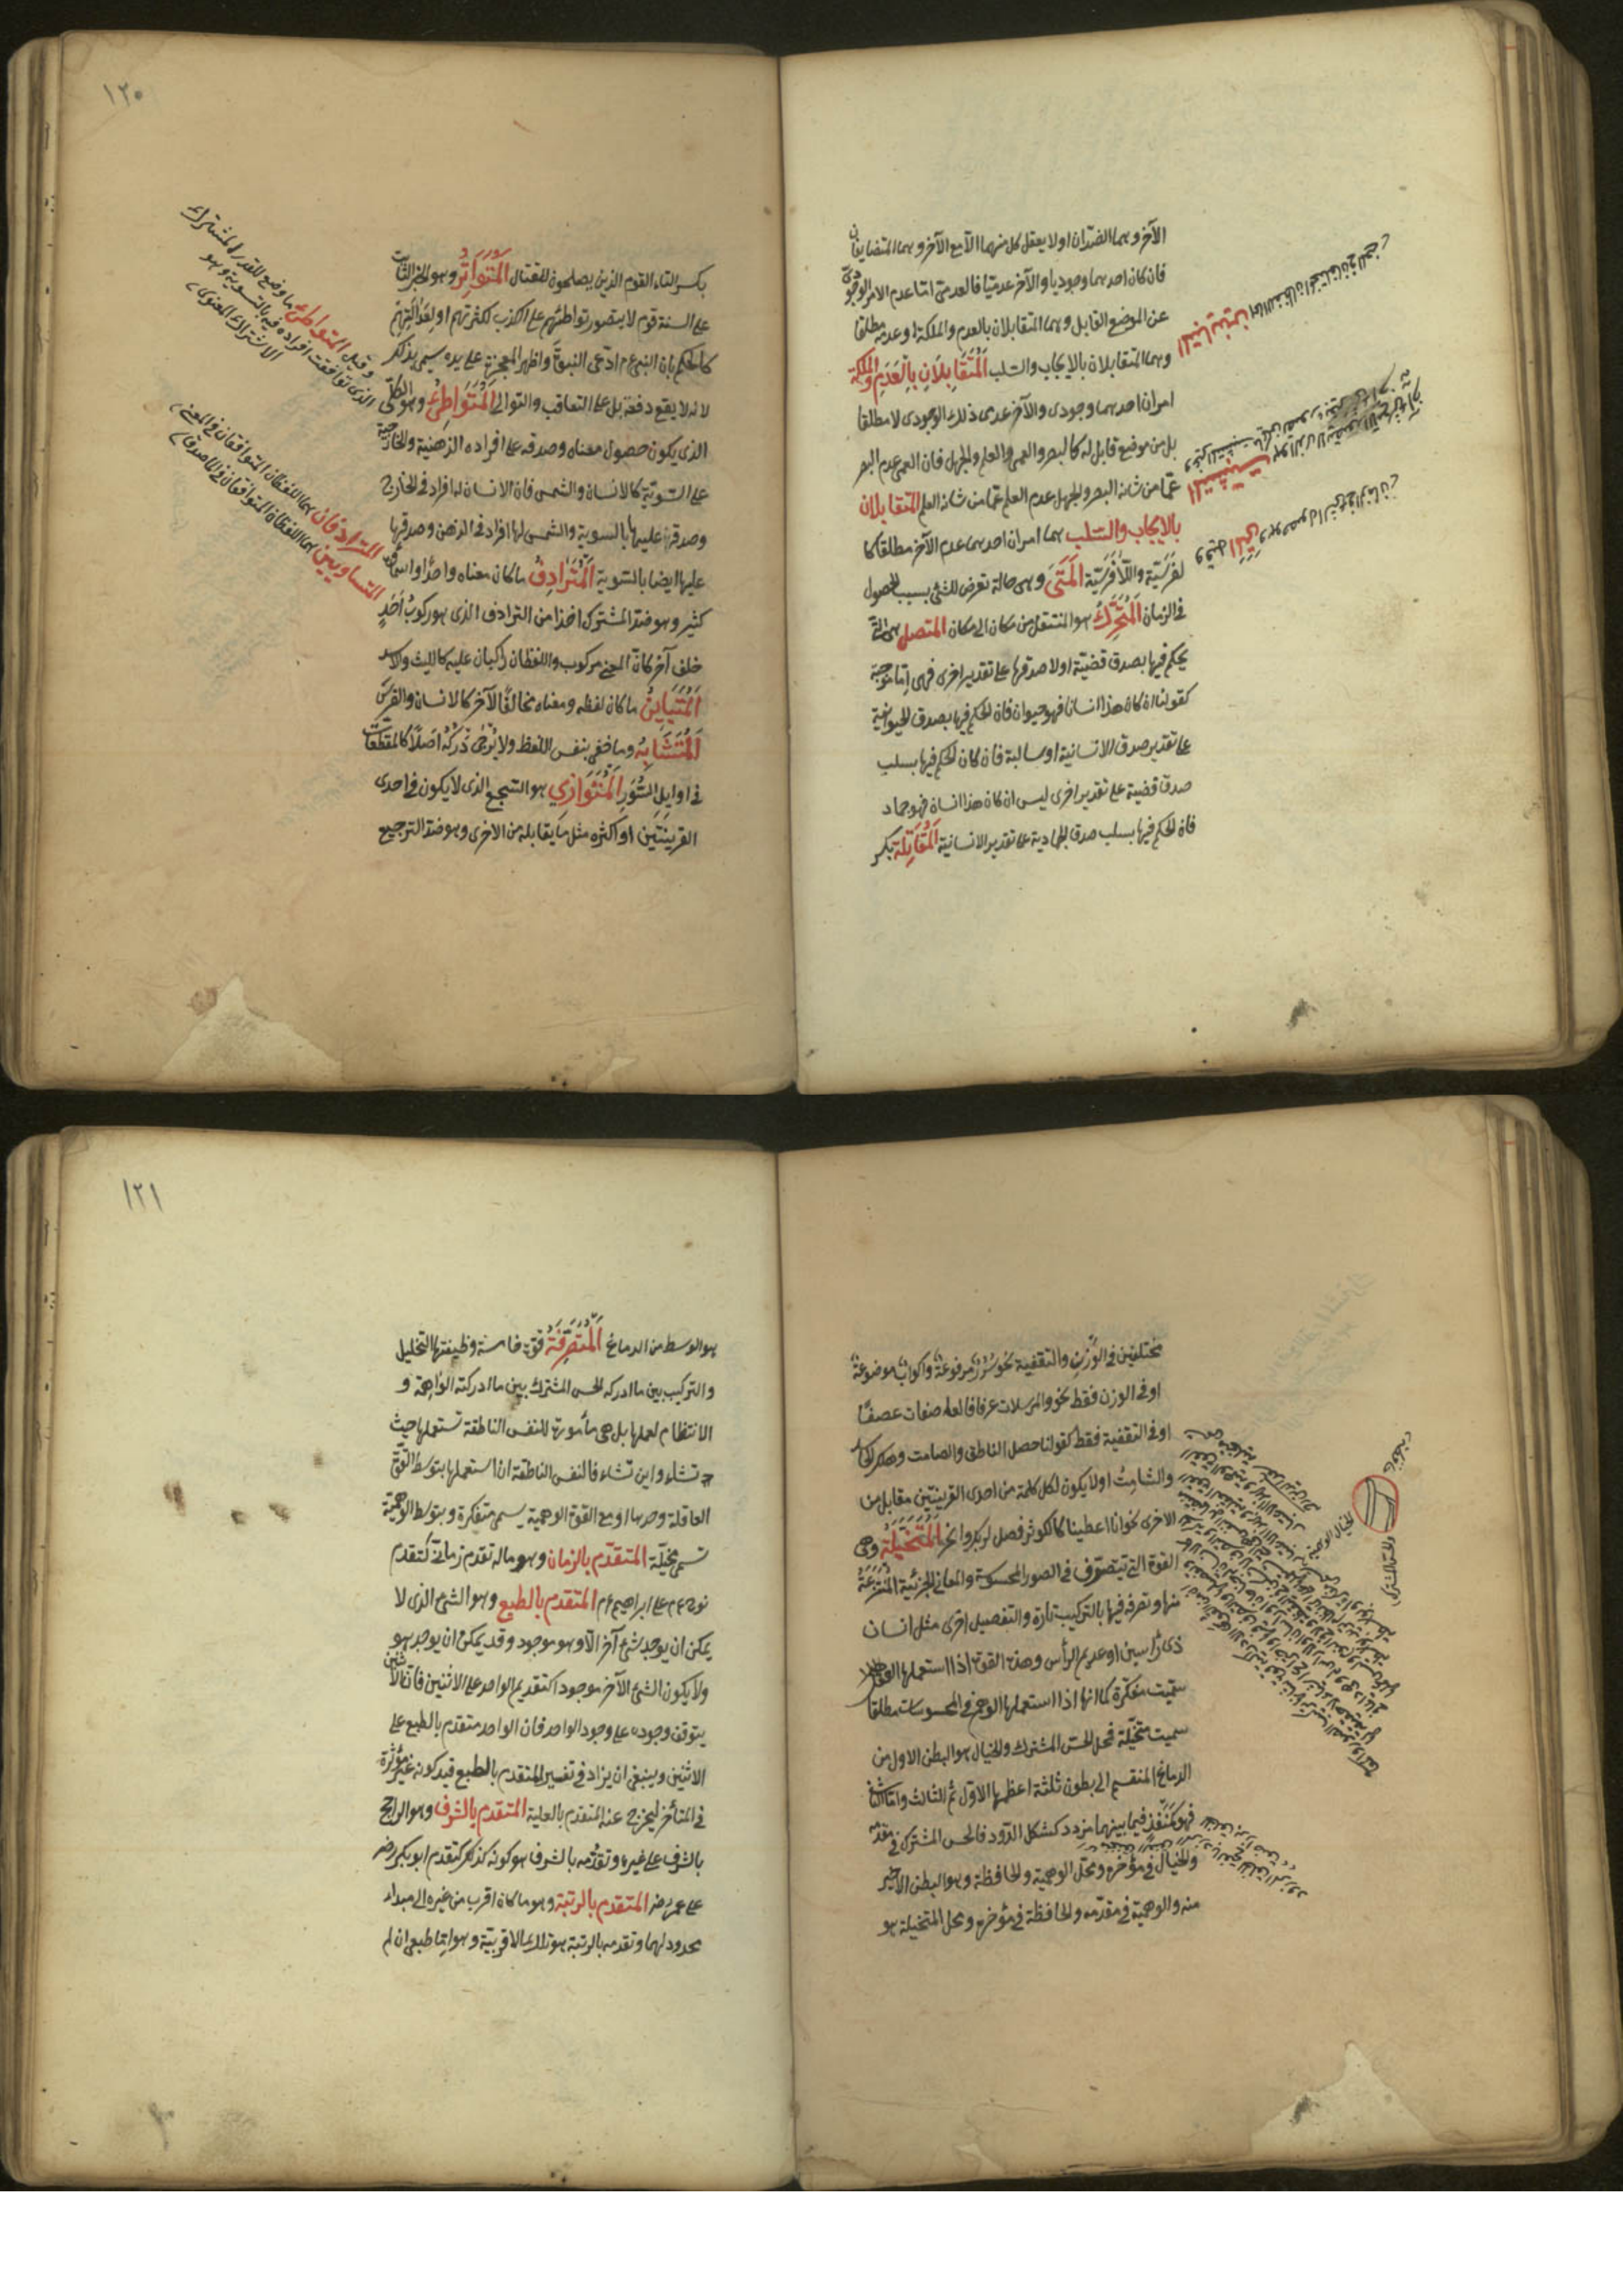 الآخر وهما الضدان او لا يعقل كل منهما الا مع الآخر وهما المتضايفان
فان كان احدهما وجوديا والآخر عدميا فالعدمى اما عدم الامر الوجودىّ
عن الموضع القابل وهما المتقابلان بالعدم والملكة او عدمه مطلقا
وهما المتقابلان بالايجاب والسلب اَلْمُتَقَابِلَانِ بِالْعَدَمِ وَالملكة
امران احدهما وجودى والآخر عدمى ذلك الوجودى لا مطلقا
بل من موضع قابل له كالبصر والعمى والعلم والجهل فان العمى عدم البصر
عمّا من شانه البصر والجهل عدم العلم عمّا من شانه العلم المتقابلان
بالايجاب والسلب هما امران احدهما عدم الآخر مطلقا كا
لفرسيّة واللّافرسيّة اَلْمَتَى وهى حالة تعرض للشئ بسبب الحصول
فى الزمان اَلْمُتَحَرِّكُ هو المنتقل من مكان الى مكان المتصل هى التى
يحكم فيها بصدق قضيّة اولا صدقها على تقدير اخرى فهى امّا موجبة
كقولنا ان كان هذا انسانا فهو حيوان فان الحكم فيها بصدق الحيوانية
على تقدير صدق الانسانية او سالبة فان كان الحكم فيها بسلب
صدق قضية على تقدير اخرى ليس ان كان هذا انسان فهو جماد
فان الحكم فيها بسلب صدق الجمادية على تقدير الانسانية اَلْمُقَاتِلَة بكسر
١٢٠
بكسر التاء القوم الذين يصلحون للقتال اَلْمُتَوَاتِرُ وهو الخبر الثابت
على السنة قوم لا يتصور تواطئهم على الكذب لكثرتهم او لِعَدَالَتِهِمْ
كالحكم بان النبى عم ادّعى النبوّة واظهر المعجزة على يده سمى بذلك
لانه لا يقع دفعة بل على التعاقب والتوالى اَلْمُتَوَاطِئُ وهو الكلّى
الذى يكون حصول معناه وصدقه على افراده الذهنية والخارجية
على السّويّة كالانسان والشمس فان الانسان له افراد فى الخارج
وصدقه عليها بالسوية والشمس لها افراد فى الذهن وصدقها
عليها ايضا بالسّوية اَلْمُتَرَادِفُ ما كان معناه واحدًا واسماؤه
كثير وهو ضد المشترك اخذا من الترادف الذى هو ركوبُ اَحَدٍ
خلف آخر كان المعنى مركوب واللفظان راكبان عليه كالليث والاسد
اَلْمُتَبَايِنُ ما كان لفظه ومعناه مخالفًا لآخر كالانسان والفرس
اَلْمُتَشَابِهُ وما خفى بنفس اللفظ ولا يُرْجَى دَرْكُهُ اَصْلًا كالمقطّعات
فى اوايل السُّوَرِ اَلْمُتَوَازِي هو السّجع الذى لا يكون فى احدى
القرينتين او اكثره مثل ما يقابله من الاخرى وهو ضد الترصيع
وقيل المتواطئ ما وضع للقدر المشترك
الذى توافقت افراده فيه بالتسوية وهو
الاشتراك المعنوى
المترادفان هما اللفظان المتوافقان فى المعنى
المتساويين هما اللفظان المتوافقان فى الماصدق
مختلفين فى الوَزْنِ والتقفية نحو سُرُرٌ مرفوعةٌ واكوابٌ موضوعةٌ
او فى الوزن فقط نحو والمرسلات عرفا فالعاصفات عصفًا
او فى التقفية فقط كقولنا حصل الناطق والصامت وهلك الحاسد
والشامت او لا يكون لكل كلمة من احدى القرينتين مقابل من
الاخرى نحو انا اعطيناك الكوثر فصل لربك وانحر اَلْمُتَخَيِّلَةُ وهى
القوة التى تتصرّف فى الصور المحسوسة والمعانى الجزئية المُنْتَزَعَةُ
منها وتصرفه فيها بالتركيب تارة والتفصيل اخرى مثل انسان
ذى رأسين او عديم الرأس وهذه القوة اذا استعملها العقل
سمّيت مفكرة كما انها اذا استعملها الوهم فى المحسوسات مطلقا
سميت متخيّلة فمحل الحسّ المشترك والخيال هو البطن الاول من
الدماغ المنقسم الى بطون ثلثة اعظمها الاوّل ثم الثالث وامّا الثانى
فهو كَمَنْفَذٍ فيما بينهما مزرد كشكل الدّود فالحس المشترك فى مقدمه
والخيال فى مؤخره ومحلّ الوهمية والحافظة وهو البطن الاخير
منه والوهمية فى مقدّمه والحافظة فى مؤخره ومحل المتخيلة هو
١٢١
هو الوسط من الدماغ اَلْمُتَصَرِّفَةُ قوّة خامسة وظيفتها التحليل
والتركيب بين ما ادركه الحس المشترك بين ما ادركته الواهمة و
الانتظام لعملها بل هى مأمورة للنفس الناطقة تستعملها حيث
تشاء واين تشاء فالنفس الناطقة ان استعملها بتوسّط القوّة
العاقلة وحدها او مع القوة الوهمية يسمى متفكرة وبتوسّط الوهمية
تسمى مخيّلة المتقدّم بالزمان وهو ماله تقدم زمانى كتقدم
نوح عم على ابراهيم عم المتقدم بالطبع وهو الشئ الذى لا
يمكن ان يوجد شئ آخر الّا وهو موجود وقد يمكن ان يوجد هو
ولا يكون الشئ الآخر موجودا كتقديم الواحد على الاثنين فان الاثنين
يتوقف وجوده على وجود الواحد فان الواحد متقدم بالطبع على
الاثنين وينبغى ان يزاد فى تفسير المتقدم بالطبع قيد كونه غير مؤثرة
فى المتأخر ليخرج عنه المتقدم بالعلية المتقدم بالشرف وهو الراجح
بالشرف على غيره وتقدّمه بالشرف هو كونه كذلك كتقدم ابو بكر رضـ
على عمر رضـ المتقدم بالرتبة وهو ما كان اقرب من غيره الى مبداء
محدود لهما وتقدمه بالرتبة هو تلك الاقربيّة وهو اما طبعى ان لم